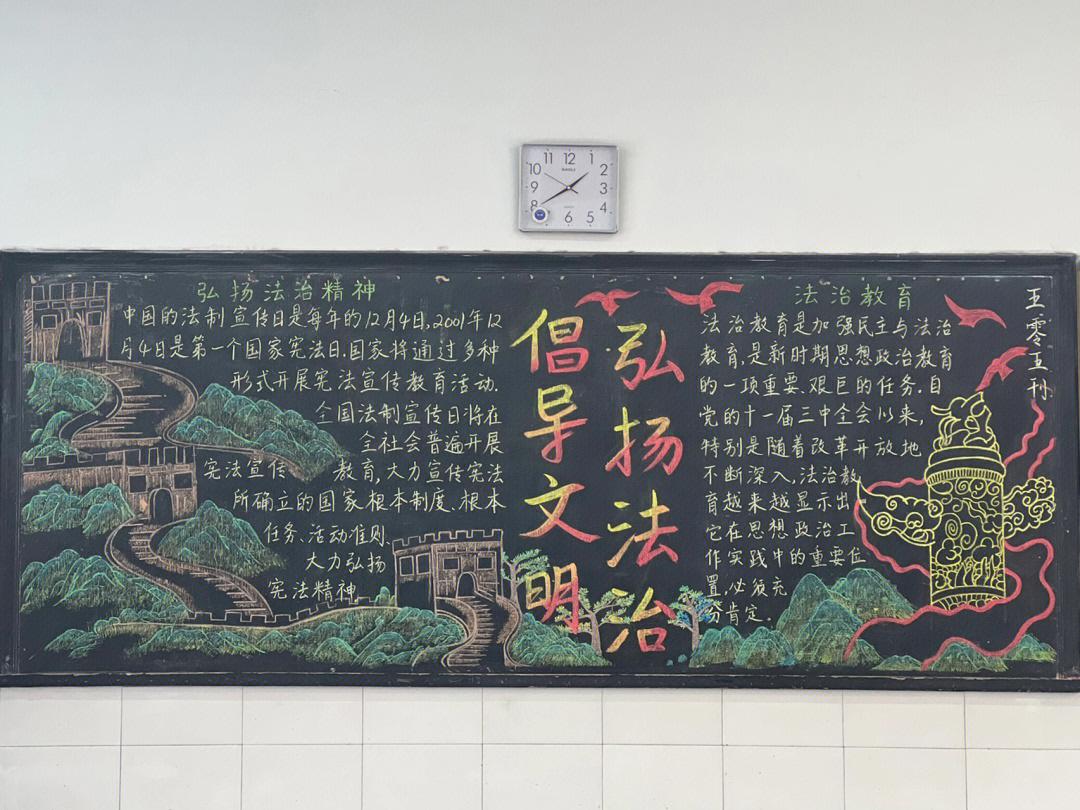 11 12 1
10 2
9 3
8 4
6 5
弘扬法治精神
中国的法制宣传日是每年的12月4日,2001年12
月4日是第一个国家宪法日.国家将通过多种
形式开展宪法宣传教育活动.
全国法制宣传日将在
全社会普遍开展
宪法宣传 教育,大力宣传宪法
所确立的国家根本制度、根本
任务、活动准则、
大力弘扬
宪法精神
倡导文明
弘扬法治
法治教育
法治教育是加强民主与法治
教育,是新时期思想政治教育
的一项重要、艰巨的任务.自
党的十一届三中全会以来,
特别是随着改革开放地
不断深入,法治教
育越来越显示出
它在思想政治工
作实践中的重要位
置,必须充
分肯定.
五零五刊